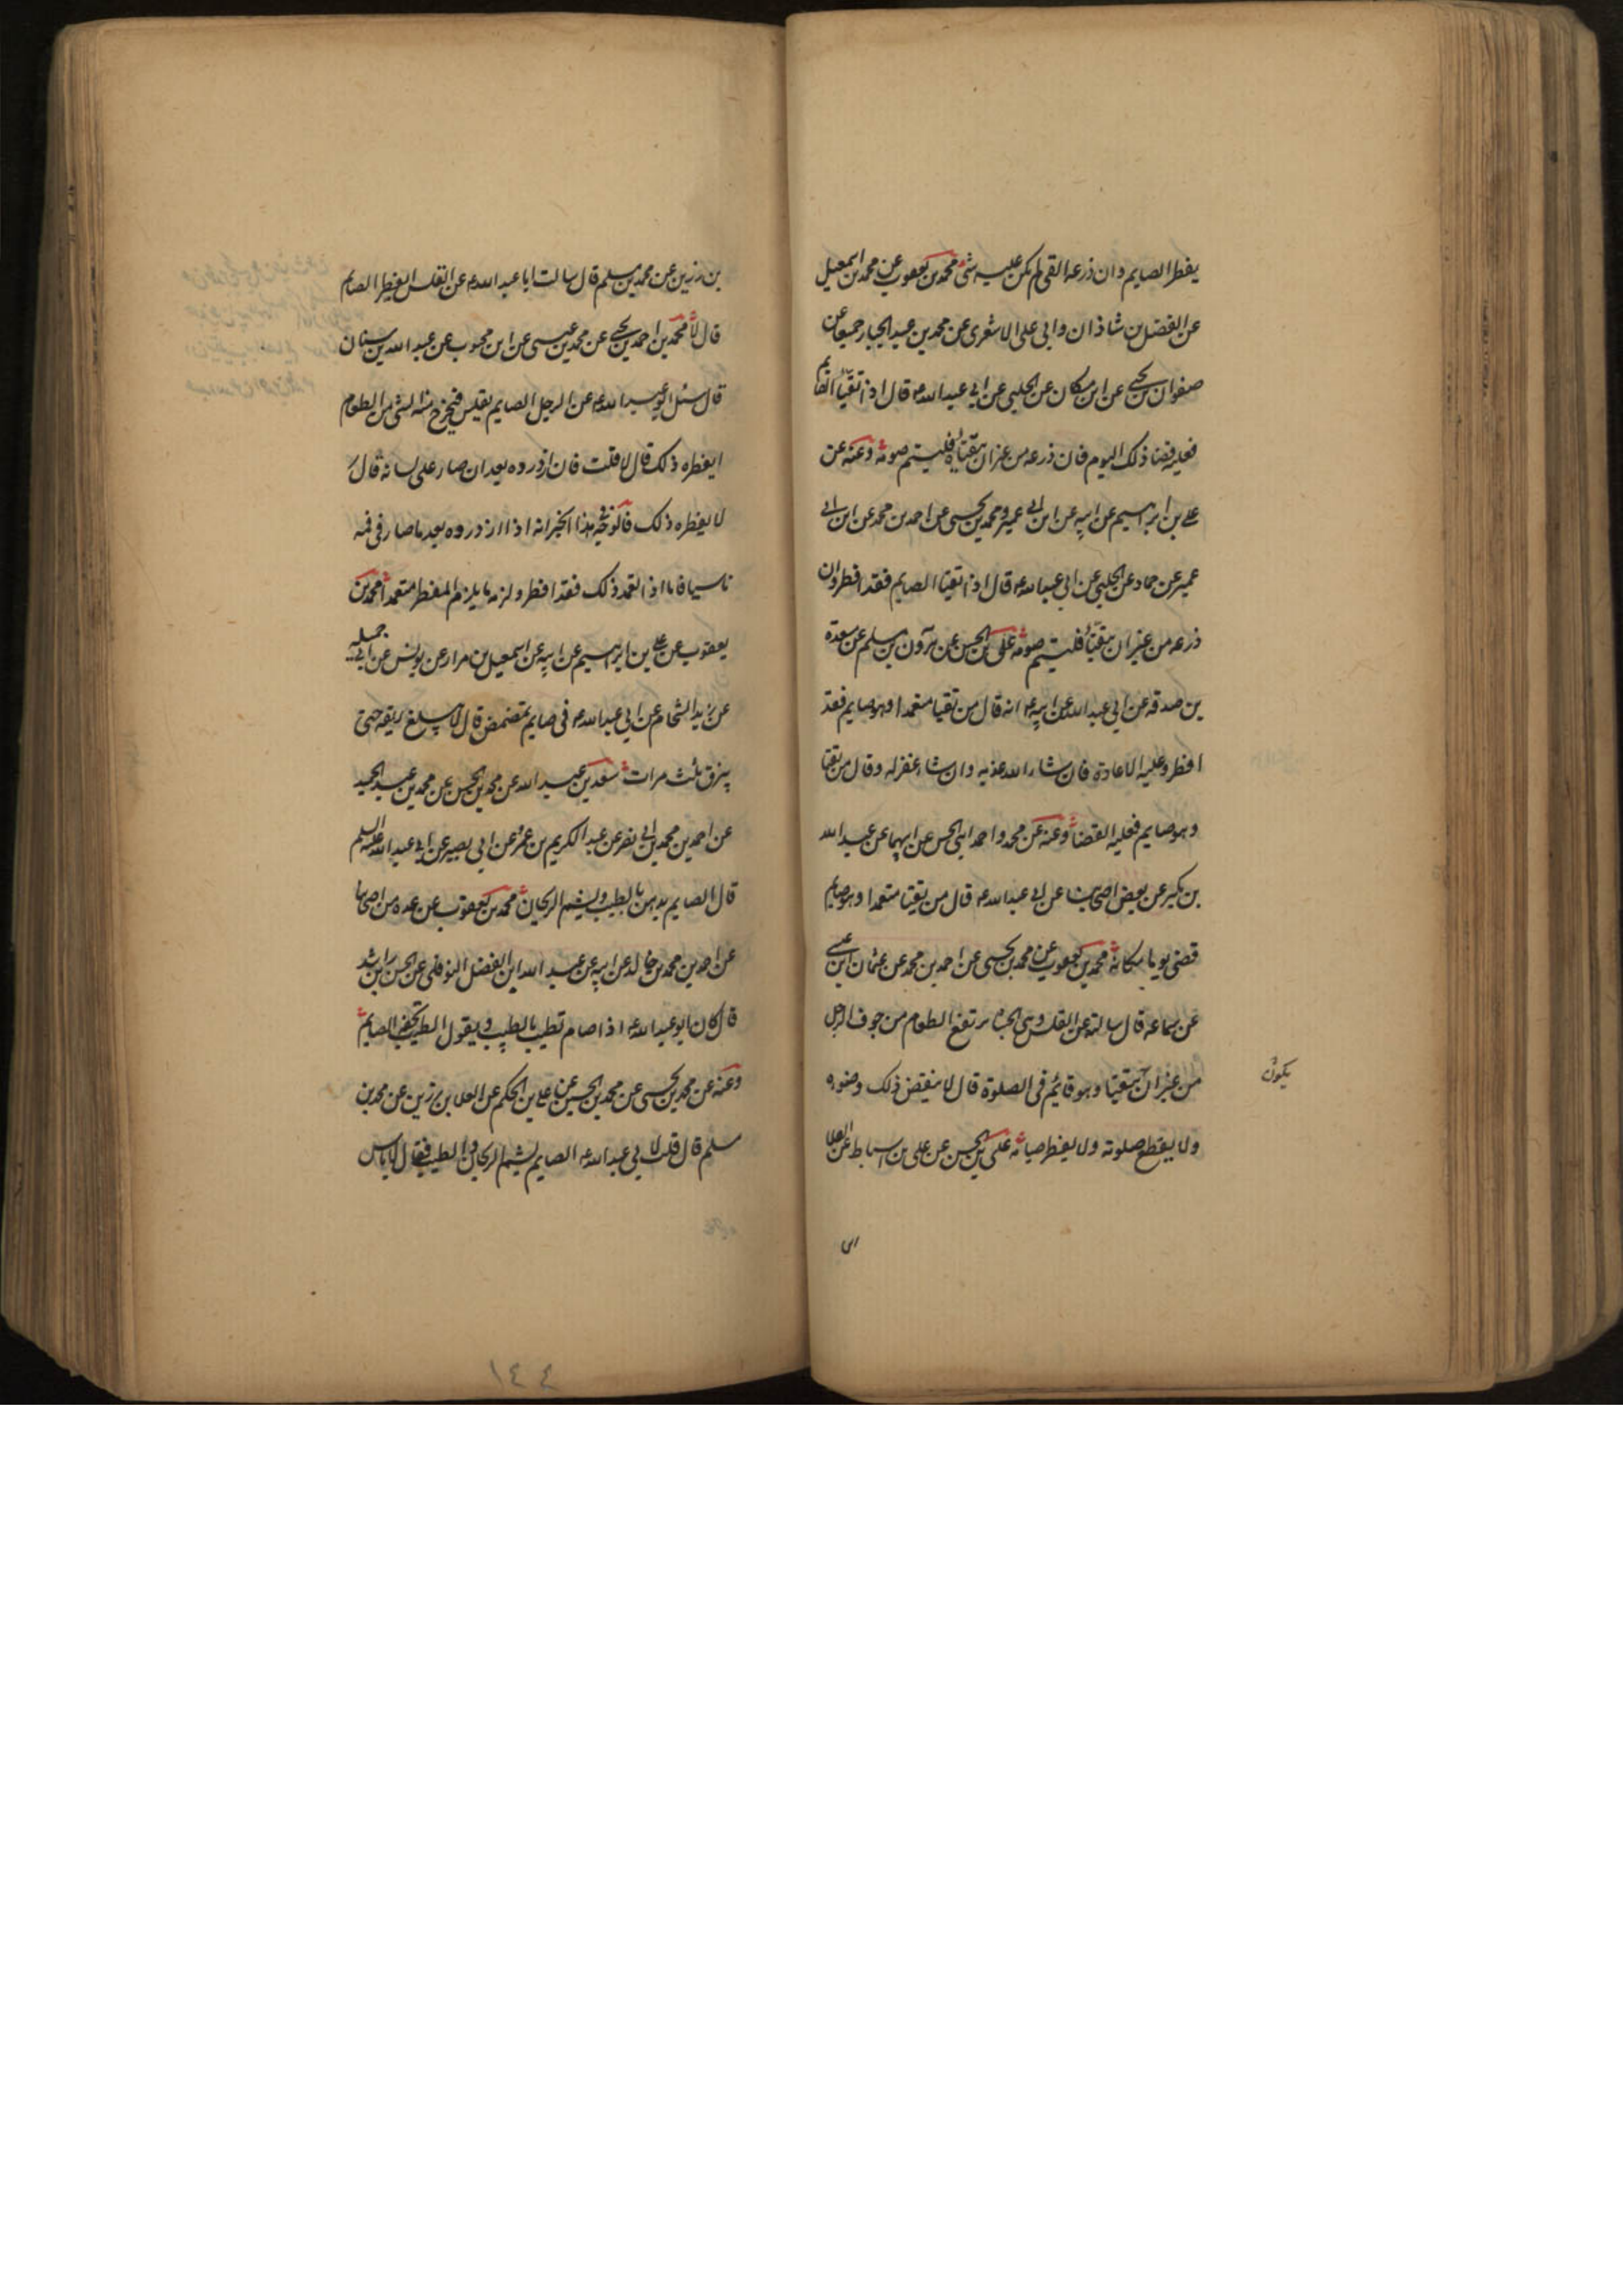 يفطر الصايم وان ذرعه القى لم يكن عليه شئ محمد بن يعقوب عن محمد بن اسمعيل
عن الفضل بن شاذان وابى على الاشعرى عن محمد بن عبد الجبار جميعا عن
صفوان بن يحيى عن ابن مسكان عن الحلبى عن ابى عبد الله ع قال اذا تقيأ الصايم
فعليه قضا ذلك اليوم فان ذرعه من غير ان يتقيأ فليتم صومه وعنه عن
على بن ابرهيم عن ابيه عن ابن ابى عمير ومحمد بن يحيى عن احمد بن محمد عن ابن ابى
عمير عن حماد عن الحلبى عن ابى عبد الله ع قال اذا تقيا الصايم فقد افطر وان
ذرعه من غير ان يتقيأ فليتم صومه على بن الحسن عن هرون بن مسلم عن مسعدة
بن صدقه عن ابى عبد الله عن ابيه ع انه قال من تقيا متعمدا وهو صايم فقد
افطر وعليه الاعادة فان شاء الله عذبه وان شاء غفر له وقال من تقيا
وهو صايم فعليه القضا وعنه عن محمد واحمد ابنى الحسن عن ابيهما عن عبد الله
بن بكير عن بعض اصحابنا عن ابى عبد الله ع قال من تقيا متعمدا وهو صايم
قضى يوما مكانه محمد بن يعقوب عن محمد بن يحيى عن احمد بن محمد عن عثمان ابن عيسى
عن سماعه قال سالته عن القلس وهى الجشاء يرتفع الطعام من جوف الرجل
من غير ان يتقيا وهو قايم فى الصلوة قال لا ينقض ذلك وضوءه
يكون
ولا يقطع صلوته ولا يفطر صيامه على بن الحسن عن على بن اسباط عن العلا
ابن
بن رزين عن محمد بن مسلم قال سالت ابا عبد الله ع عن القلس ايفطر الصايم
قال لا محمد بن احمد بن يحيى عن محمد بن عيسى عن ابن محبوب عن عبد الله بن سنان
قال سئل ابو عبد الله ع عن الرجل الصايم يقلس فيخرج منه الشئ من الطعام
ايفطره ذلك قال لا قلت فان ازدرده بعد ان صار على لسانه قال
لا يفطره ذلك فالوجه فى هذا الخبر انه اذا ازدرده بعد ما صار فى فمه
ناسيا فاما اذا تعمد ذلك فقد افطر ولزمه ما يلزم المفطر متعمدا محمد بن
يعقوب عن على بن ابرهيم عن ابيه عن اسمعيل بن مرار عن يونس عن ابى جميله
عن زيد الشحام عن ابى عبد الله ع فى صايم يتمضمض قال لا يبلع ريقه حتى
يبزق ثلث مرات سعد بن عبد الله عن محمد بن الحسن عن محمد بن عبد الحميد
عن احمد بن محمد بن ابى نصر عن عبد الكريم بن عمرو عن ابى بصير عن ابى عبد الله عليه السلم
قال الصايم يدهن بالطيب ويشم الريحان محمد بن يعقوب عن عده من اصحابنا
عن احمد بن محمد بن خالد عن ابيه عن عبد الله ابن الفضل النوفلى عن الحسن بن راشد
قال كان ابو عبد الله ع اذا صام تطيب بالطيب ويقول الطيب تحفة الصايم
وعنه عن محمد بن يحيى عن محمد بن الحسين عن على بن الحكم عن العلا بن رزين عن محمد بن
مسلم قال قلت لابى عبد الله ع الصايم يشم الريحان والطيب فقال لا باس
١٤٤